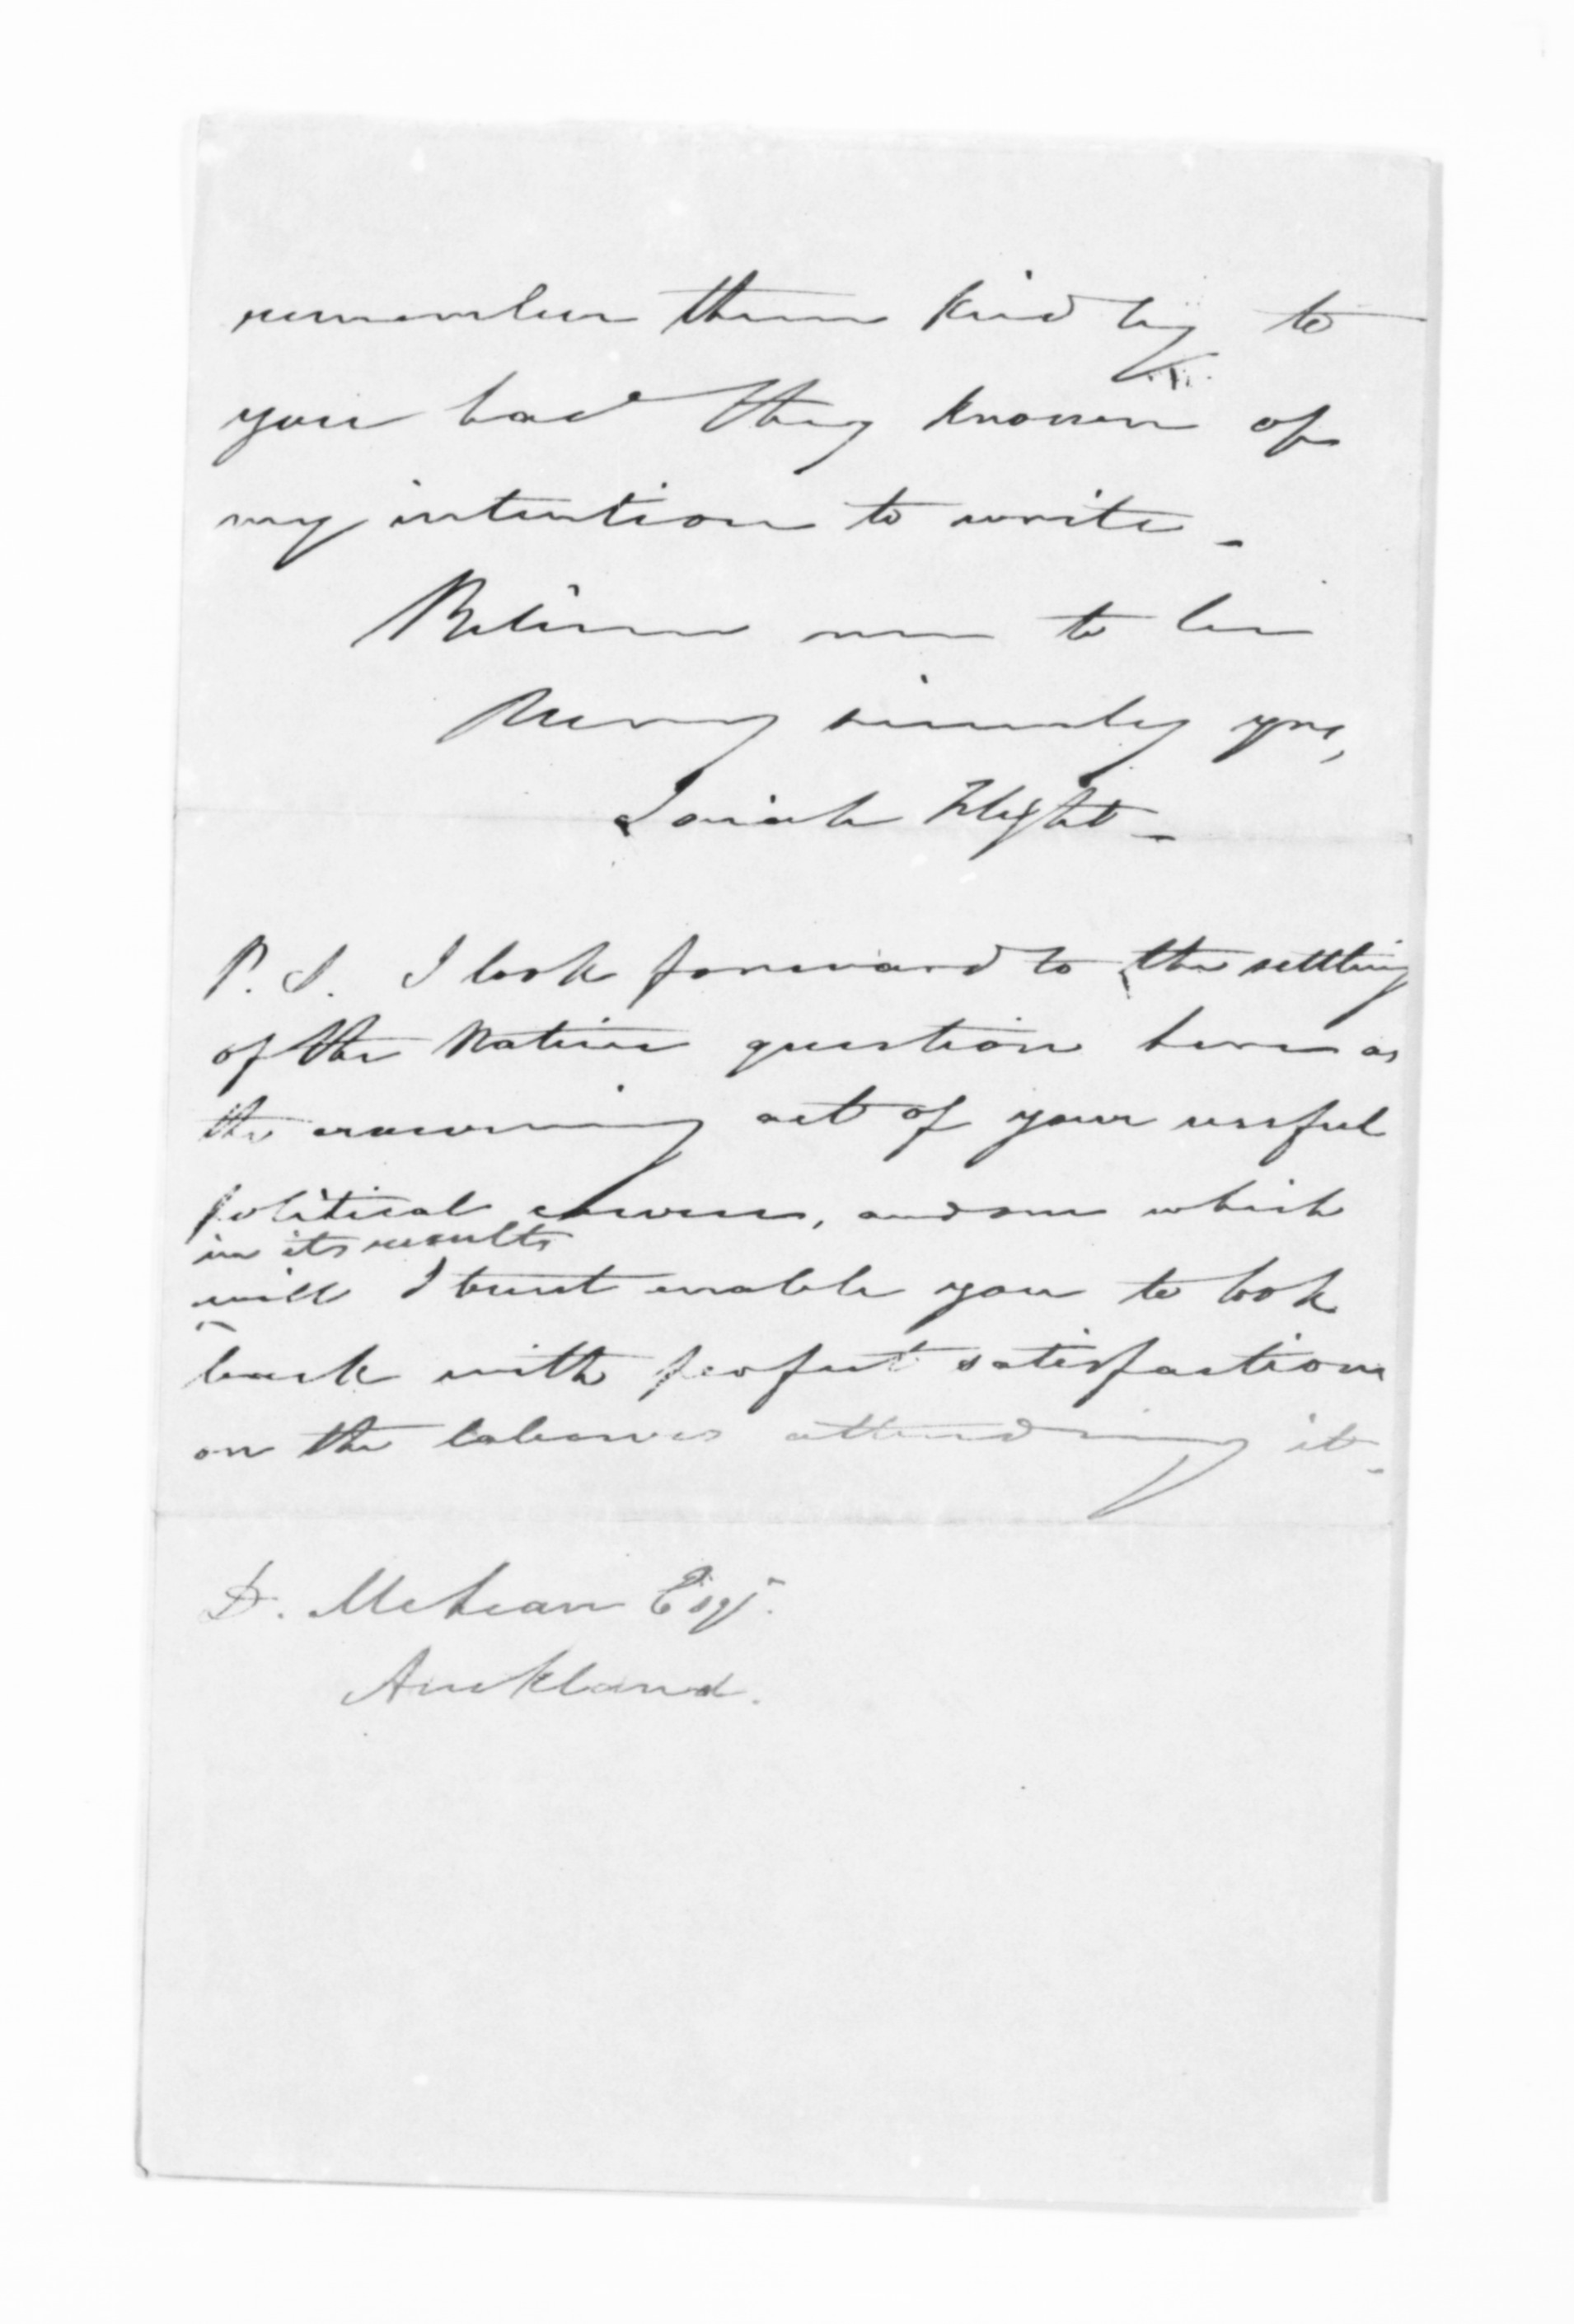 remember them kindly to
you had they known of
my intention to write -
Believe me to be
Very sincerely yrs,
Josiah Flight -
P. S. I look forward to the settling
of the Native question here as
the crowning act of your useful
political career, and one which
in its results
will I trust enable you to look
back with perfect satisfaction
on the labours attending it -
D. McLean Esqr.
Auckland.